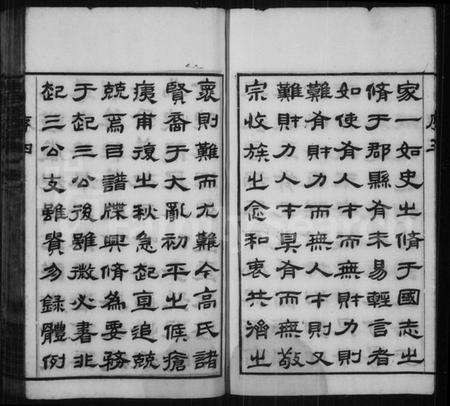 家一如史之脩于國志之
脩于郡縣有未易輕言者
如使有人才而無財力則
難有財力而無人才則又
難財力人才具有而無敬
宗收族之念和衷共濟之
衷則難而尤難今高氏諸
賢裔于大亂初平之候瘡
痍甫復之秋急起亟追兢
兢焉曰譜牒興脩為要務
于起三公後雖微必書非
起三公支雖貴勿錄體例